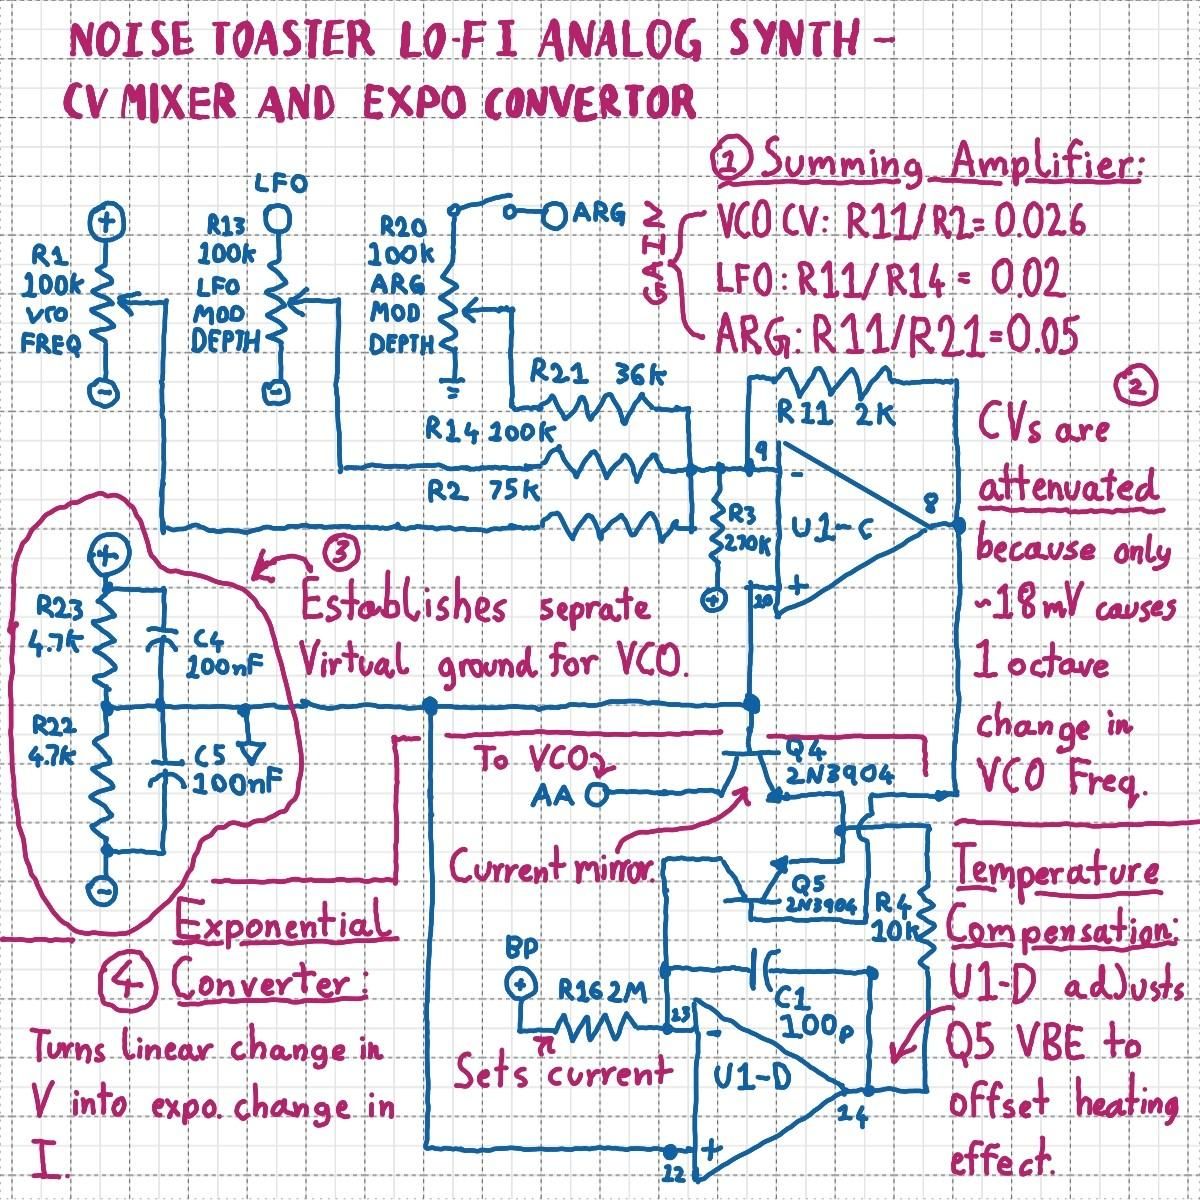 NOISE TOASTER LO-FI ANALOG SYNTH -
CV MIXER AND EXPO CONVERTOR
① Summing Amplifier:
GAIN
VCO CV: R11/R2= 0.026
LFO: R11/R14 = 0.02
ARG: R11/R21=0.05
+
R1
100k
VCO
FREQ
-
LFO
R13
100k
LFO
MOD
DEPTH
-
R20
100k
ARG
MOD
DEPTH
ARG
R21 36k
R14 100k
R2 75k
R11 2K
9
-
8
U1-C
R3
270k
+
10
+
②
CVs are
attenuated
because only
~18mV causes
1 octave
change in
VCO Freq.
③
Establishes seprate
Virtual ground for VCO.
+
R23
4.7k
C4
100nF
R22
4.7k
C5
100nF
-
To VCO
AA
Q4
2N3904
Current mirror.
Q5
2N3904
R4
10k
Temperature
Compensation:
U1-D adjusts
Q5 VBE to
offset heating
effect.
Exponential
④ Converter:
Turns linear change in
V into expo. change in
I.
BP
+
R16 2M
Sets current
C1
100p
13
-
U1-D
14
+
12